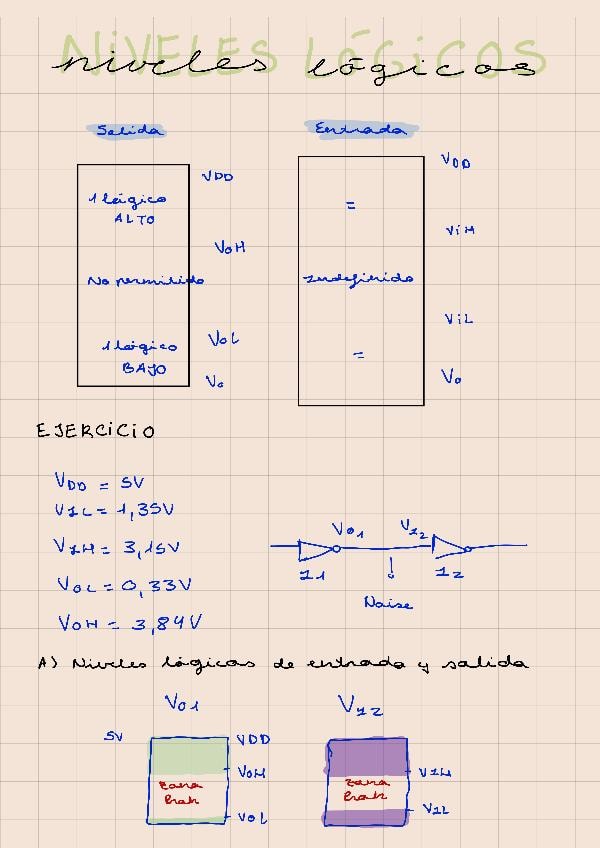 NIVELES LÓGICOS
niveles lógicos
Salida
Entrada
VDD
1 lógico
ALTO
VOH
No permitido
1 lógico
BAJO
VOL
Vo
VDD
=
ViH
Indefinido
ViL
=
Vo
EJERCICIO
VDD = 5V
VIL = 1,35V
VIH = 3,15V
VOL = 0,33V
VOH = 3,84V
VO1
VI2
I1
I2
Noise
A) Niveles lógicos de entrada y salida
VO1
VI2
5V
VDD
VOH
zona
VOL
VIH
zona
VIL